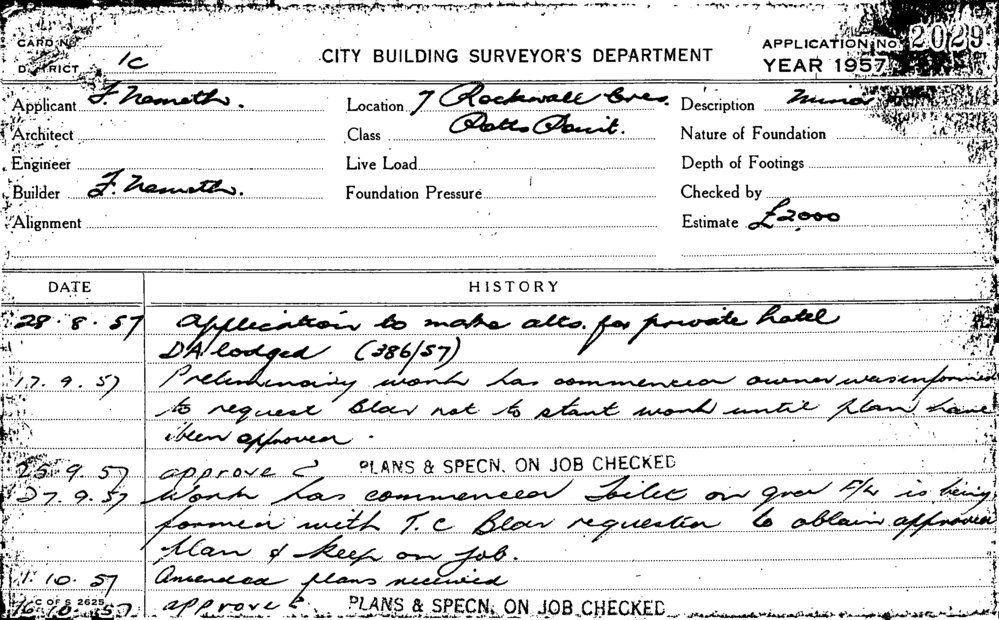 CARD No.
CITY BUILDING SURVEYOR'S DEPARTMENT
APPLICATION No. 2029
DISTRICT 1C
YEAR 1957
Applicant F. Nemeth.
Location 7 Rockwall Cres.
Description Minor
Architect
Class Potts Point.
Nature of Foundation
Engineer
Live Load
Depth of Footings
Builder F. Nemeth.
Foundation Pressure
Checked by
Alignment
Estimate £2000
DATE HISTORY
28.8.57 Application to make alts. for private hotel
DA lodged (386/57)
17.9.57 Preliminary work has commenced owner was informed
to request Bldr not to start work until plan have
been approved.
25.9.57 approve PLANS & SPECN. ON JOB CHECKED
27.9.57 Work has commenced Toilet on grd F/lr is being
formed with T.C Bldr requested to obtain approved
plan & keep on job.
1.10.57 Amended plans received
C OF S 2625
16.10.57 approve PLANS & SPECN. ON JOB CHECKED